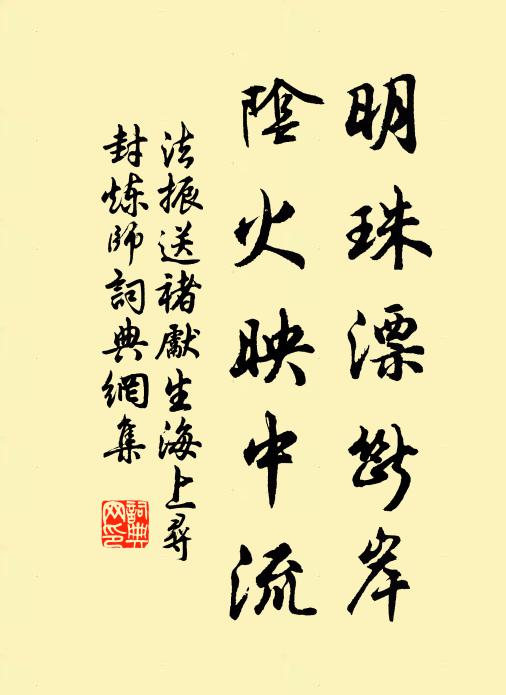 明珠漂斷岸
陰火映中流
法振送褚獻生海上尋
封煉师詞典網集
詞典网印